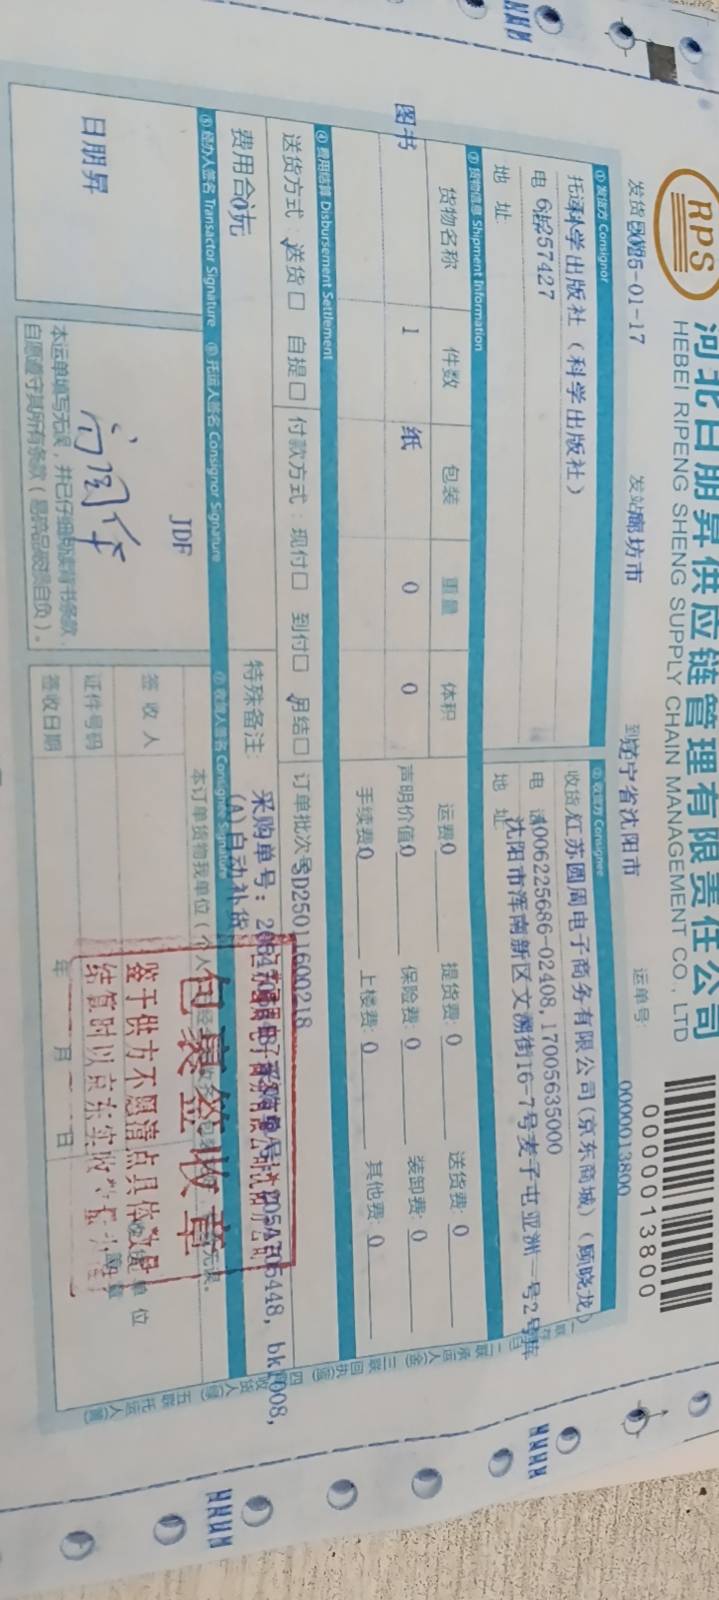 RPS
河北日朋昇供应链管理有限责任公司
HEBEI RIPENG SHENG SUPPLY CHAIN MANAGEMENT CO., LTD
0000013800
发货 2025-01-17
发站 廊坊市
到 辽宁省沈阳市
运单号:
0000013800
① 发货方 Consignor
② 收货方 Consignee
科学出版社（科学出版社）
收货 江苏圆周电子商务有限公司(京东商城)（顾晓龙）
电 257427
电 4006225686-02408,17005635000
地 址:
地 址 沈阳市浑南新区文溯街16-7号麦子屯亚洲一号2号库
③ 货物信息 Shipment Information
货物名称 件数 包装 重量 体积
图书 1 纸 0 0
运费:0 提货费: 0 送货费: 0
声明价值:0 保险费: 0 装卸费: 0
手续费:0 上楼费: 0 其他费: 0
④ 费用结算 Disbursement Settlement
送货方式: 送货 自提 付款方式: 现付 到付 月结
订单批次号 SD25011600218
费用合计 0元
特殊备注:
采购单号:
5448, bk1008,
(A)自动补货
⑤ 经办人签名 Transactor Signature
⑥ 托运人签名 Consignor Signature
⑦ 收货人签名 Consignee Signature
日朋昇
JDF
本运单填写无误，并已仔细阅读背书条款，
自愿遵守其所有条款（易碎品破损自负）。
本订单货物我单位（个人
无误。
签收人
证件号码
签收日期
年 月 日
包裹签收章
鉴于供方不愿清点具体数量
结算时以京东实收数量为准